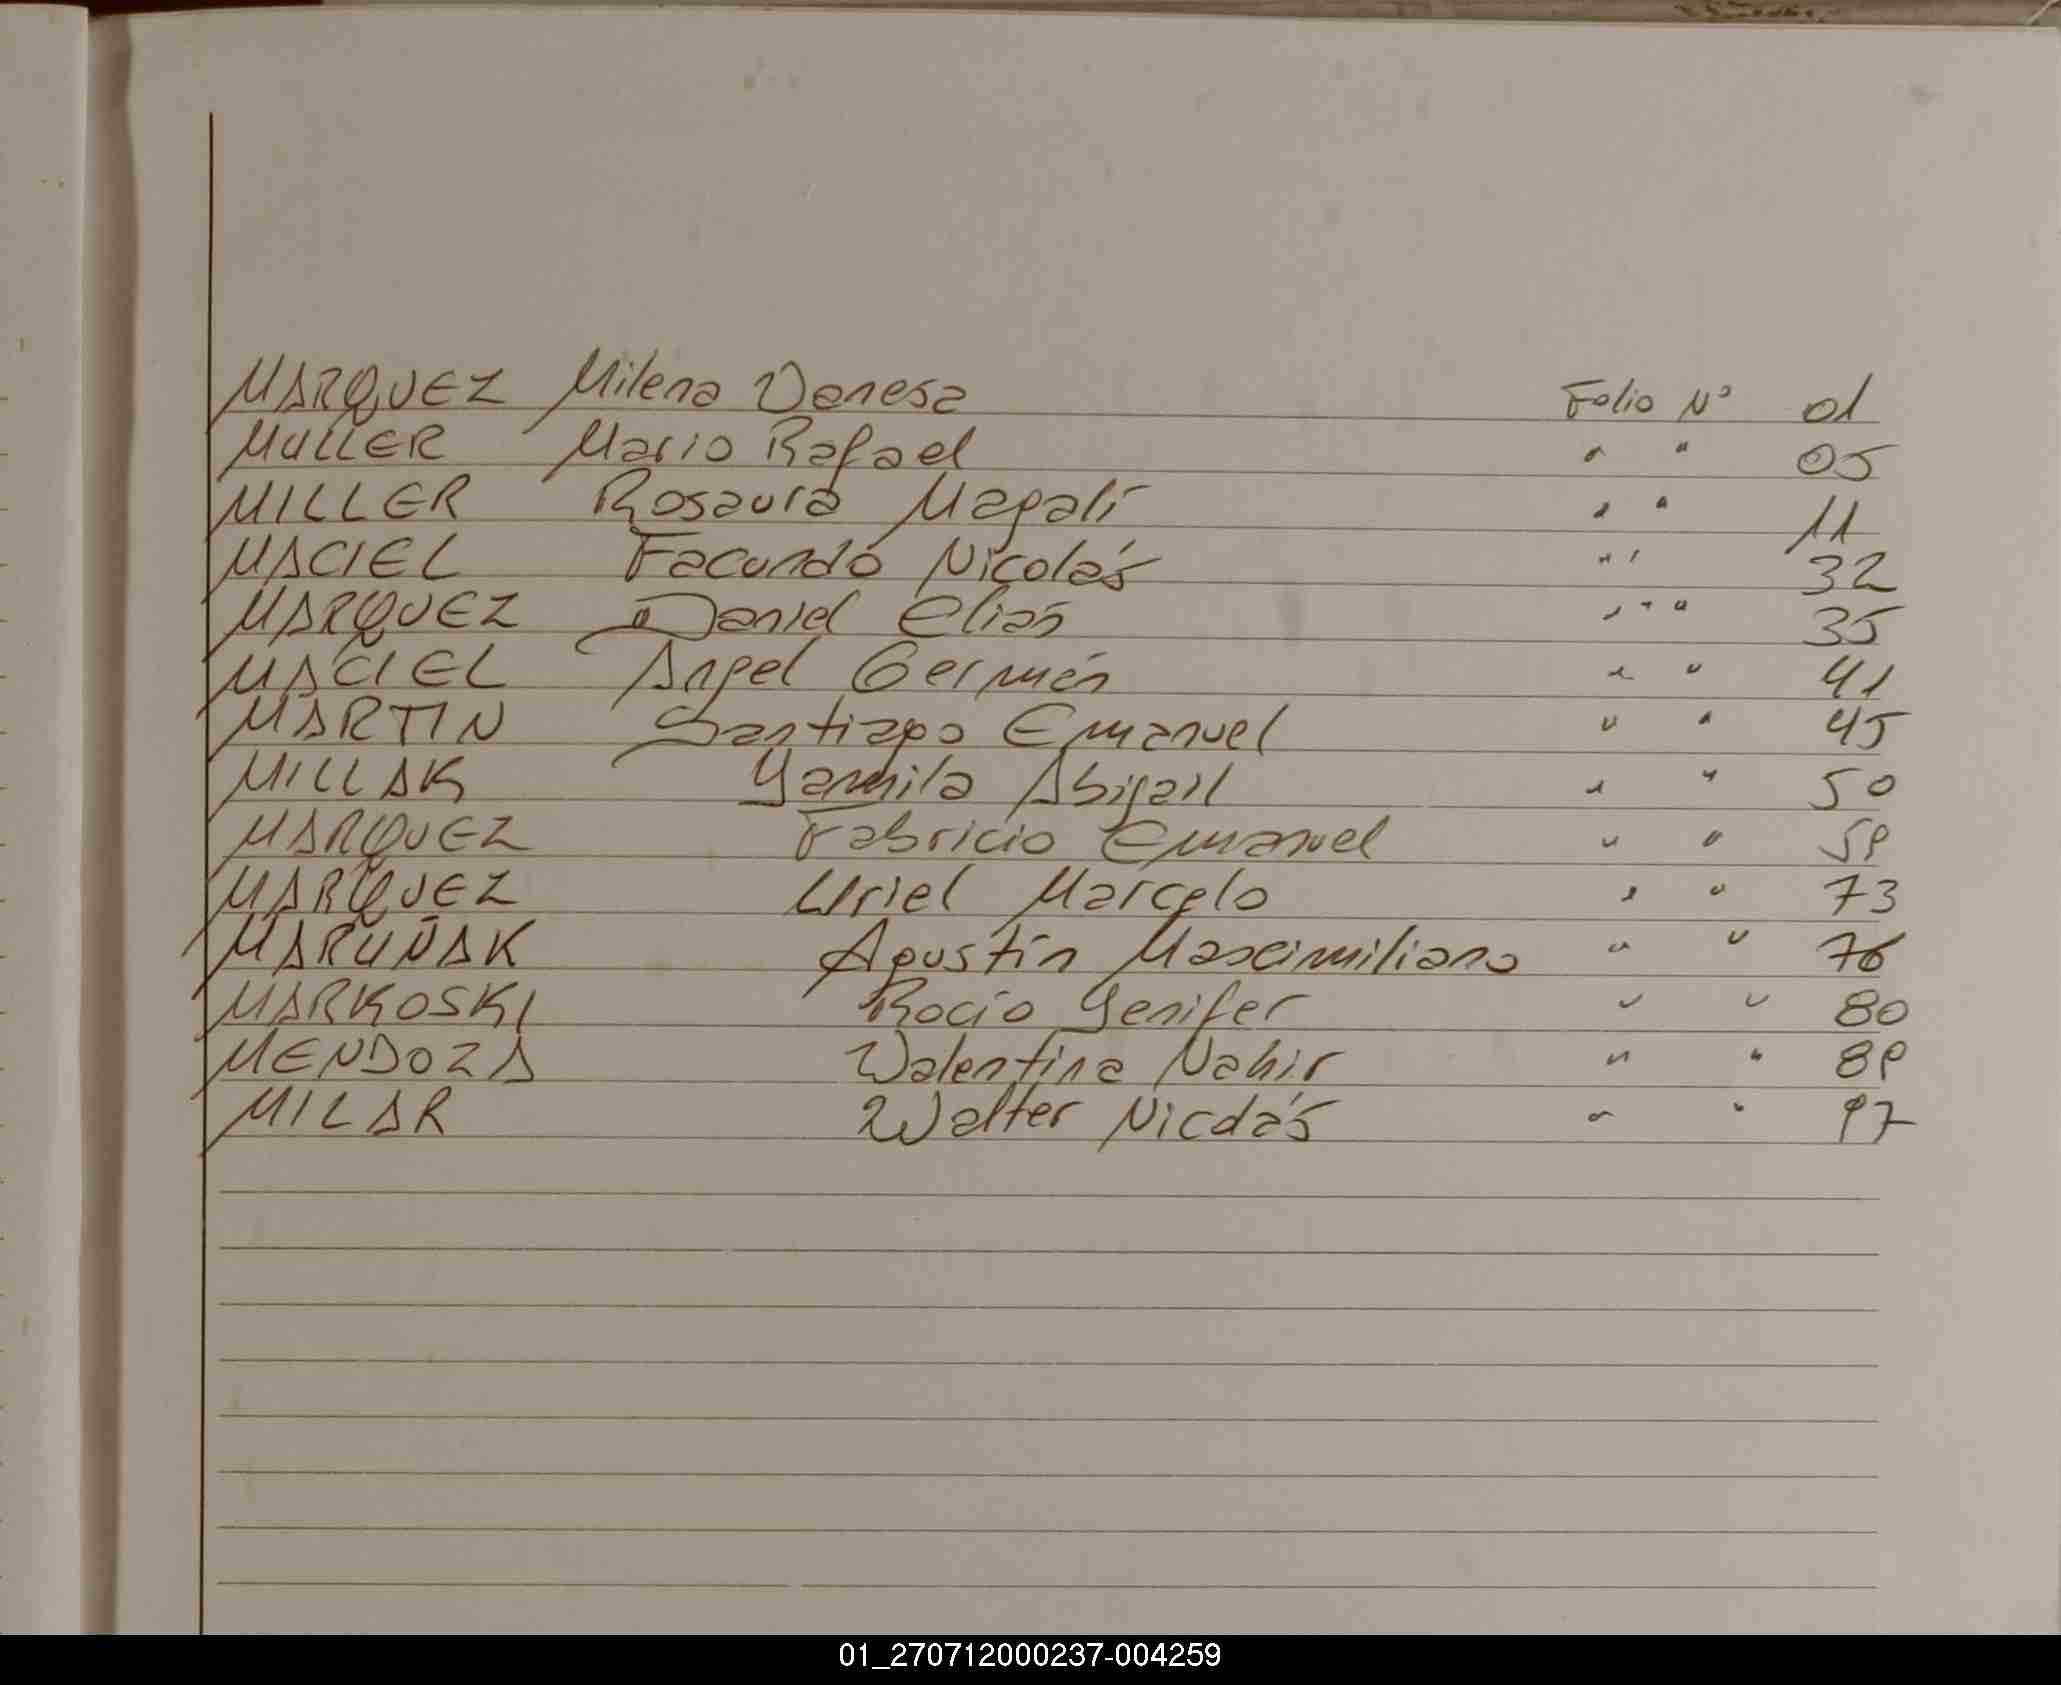 MARQUEZ Milena Vanesa Folio Nº 01
MULLER Mario Rafael " " 05
MILLER Rosaura Magalí " " 11
MACIEL Facundo Nicolás " " 32
MARQUEZ Daniel Elías " " 35
MACIEL Angel Germán " " 41
MARTIN Santiago Emanuel " " 45
MILLAK Yamila Abigail " " 50
MARQUEZ Fabricio Emanuel " " 59
MARQUEZ Uriel Marcelo " " 73
MARUÑAK Agustín Maximiliano " " 76
MARKOSKI Rocío Yenifer " " 80
MENDOZA Valentina Nahir " " 89
MILAR Walter Nicolás " " 97
01_270712000237-004259